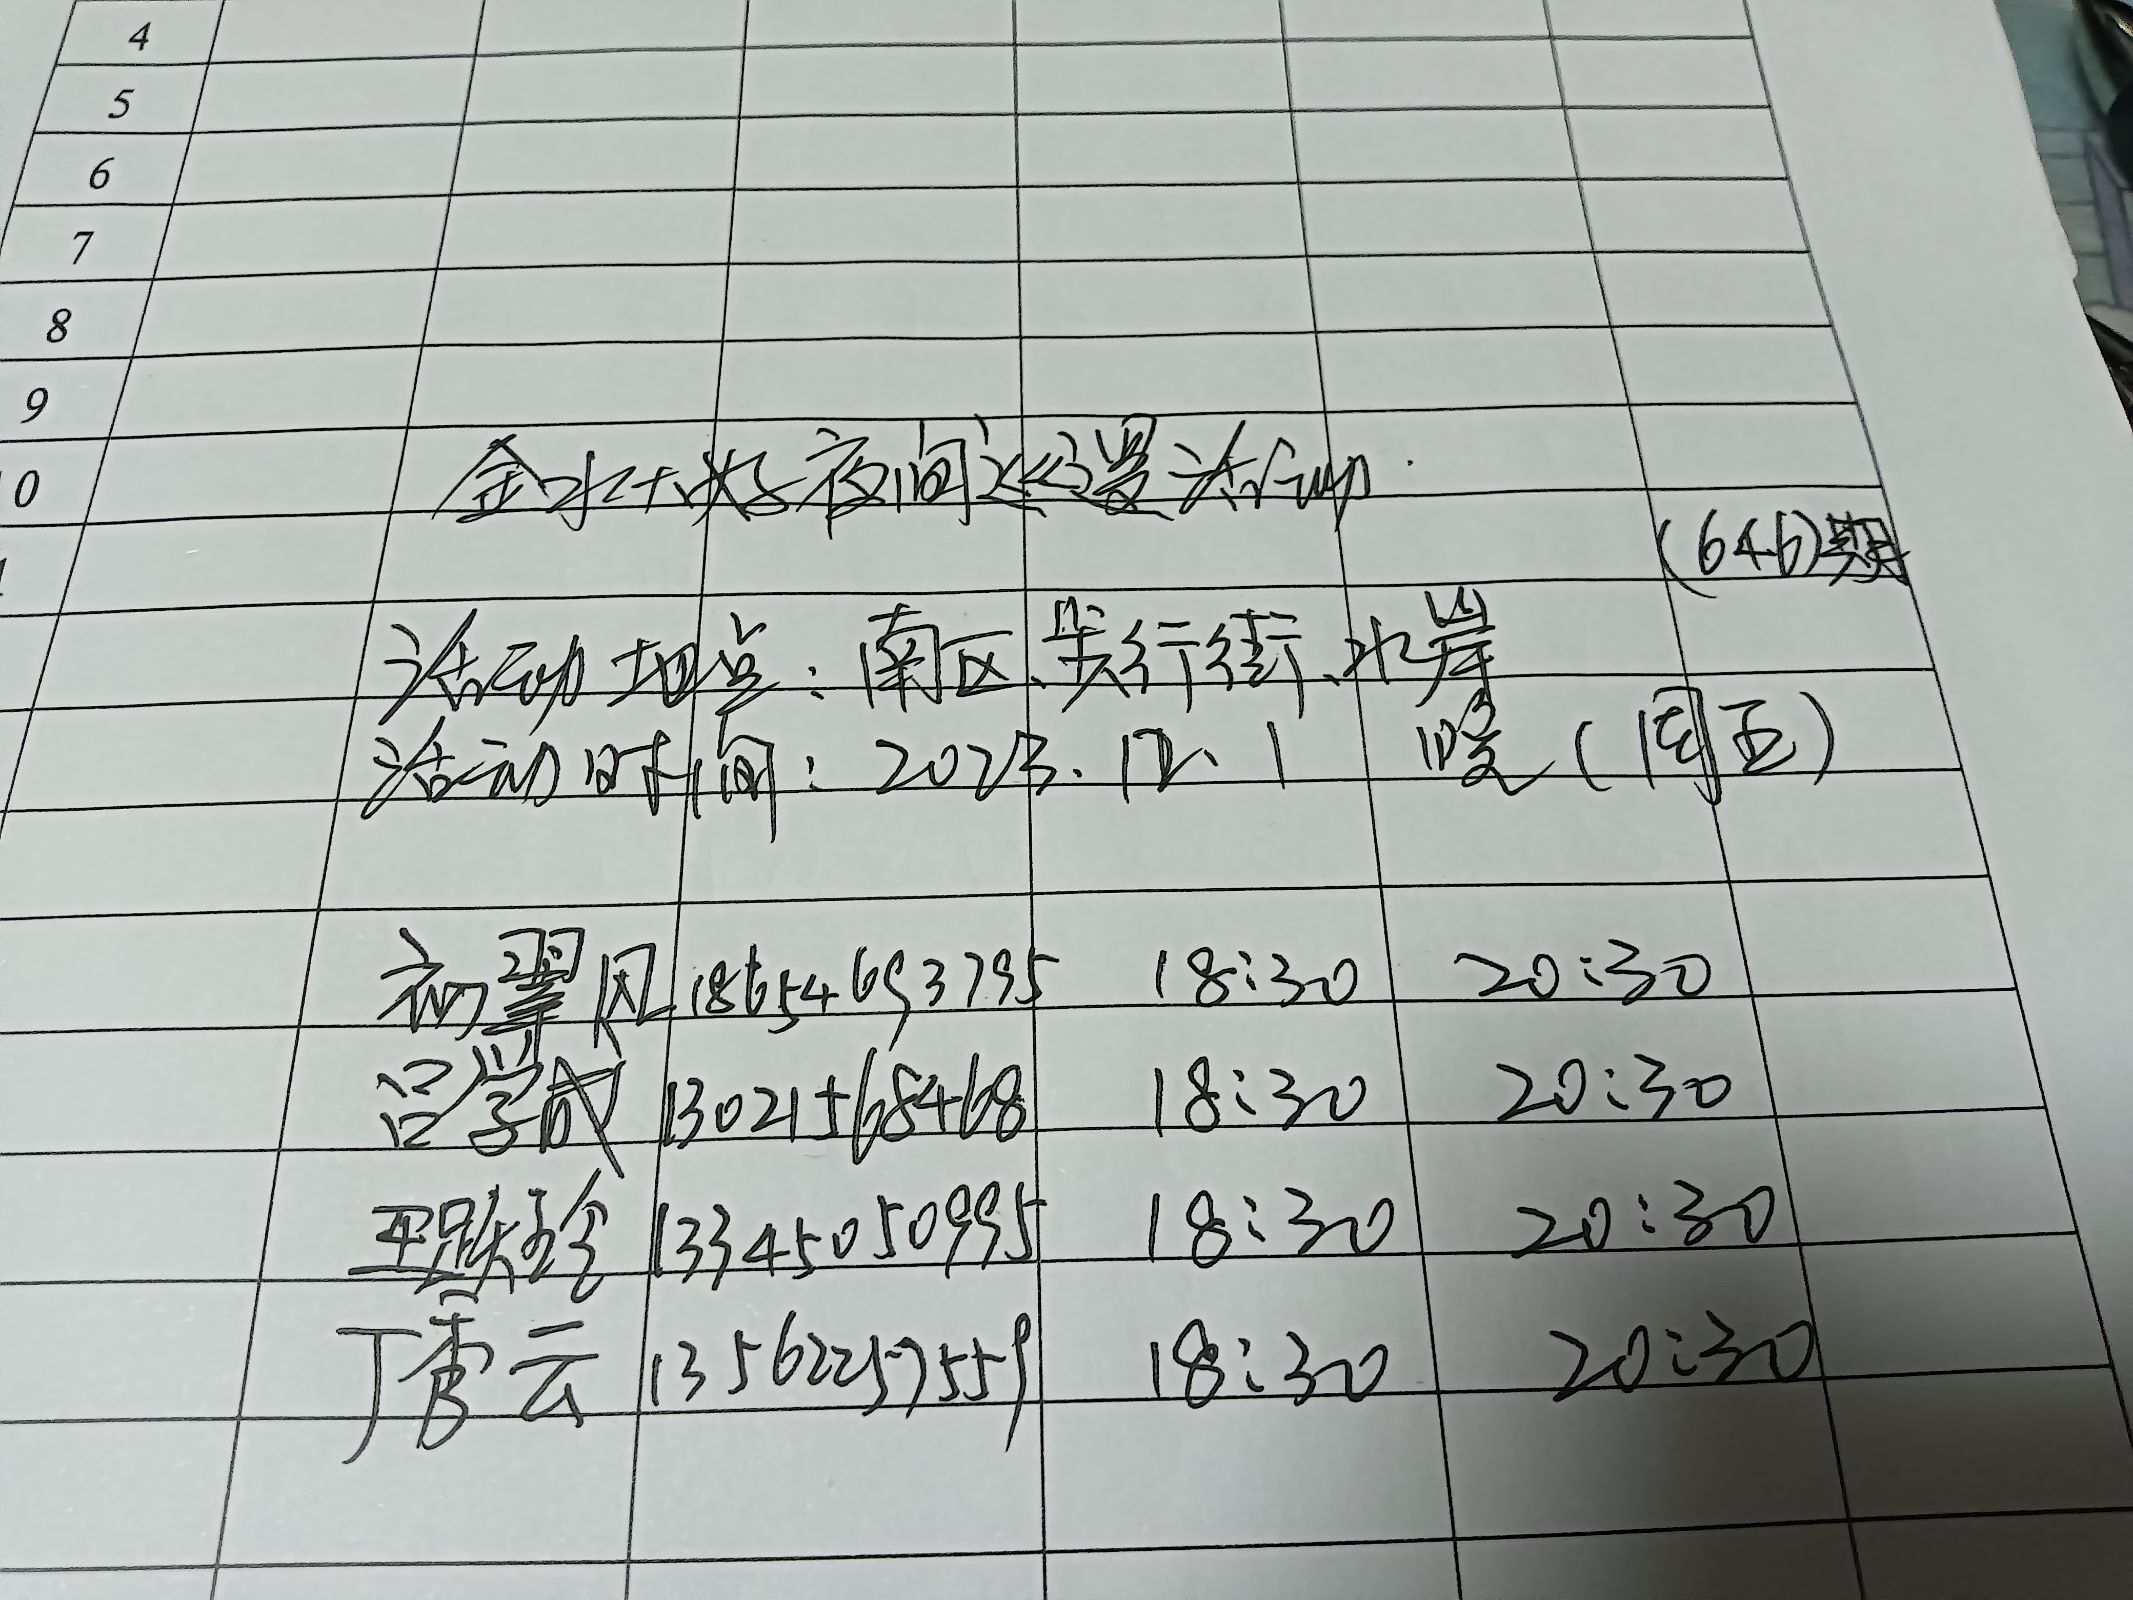 4
5
6
7
8
9
0
金水大好夜间巡逻活动
(646)期
活动地点:南区、步行街、水岸
活动时间:2023.12.1 晚(周五)
初翠凤 18654693795 18:30 20:30
吕学成 13021568468 18:30 20:30
13345050995 18:30 20:30
丁秀云 13562257559 18:30 20:30